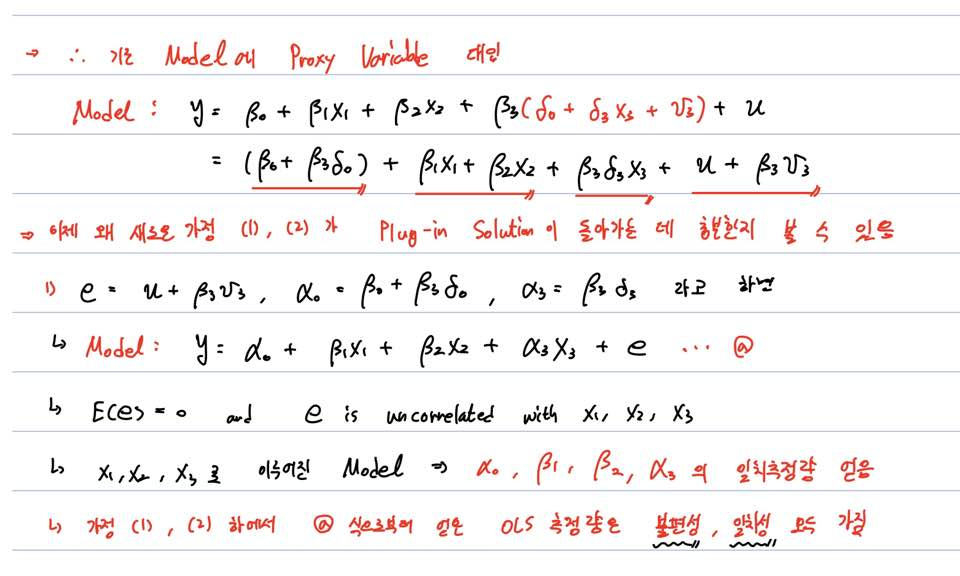 ⇒ ∴ 기존 Model에 Proxy Variable 대입
Model : y = β₀ + β₁x₁ + β₂x₂ + β₃(δ₀ + δ₃x₃ + v₃) + u
= (β₀ + β₃δ₀) + β₁x₁ + β₂x₂ + β₃δ₃x₃ + u + β₃v₃
⇒ 이제 왜 새로운 가정 (1), (2)가 Plug-in Solution이 돌아가는 데 충분한지 볼 수 있음
1) e = u + β₃v₃, α₀ = β₀ + β₃δ₀, α₃ = β₃δ₃ 라고 하면
↳ Model : y = α₀ + β₁x₁ + β₂x₂ + α₃x₃ + e ... ⓐ
↳ E(e) = 0 and e is uncorrelated with x₁, x₂, x₃
↳ x₁, x₂, x₃로 이루어진 Model ⇒ α₀, β₁, β₂, α₃의 일치추정량 얻음
↳ 가정 (1), (2) 하에서 ⓐ 식으로부터 얻은 OLS 추정량은 불편성, 일치성 모두 가짐